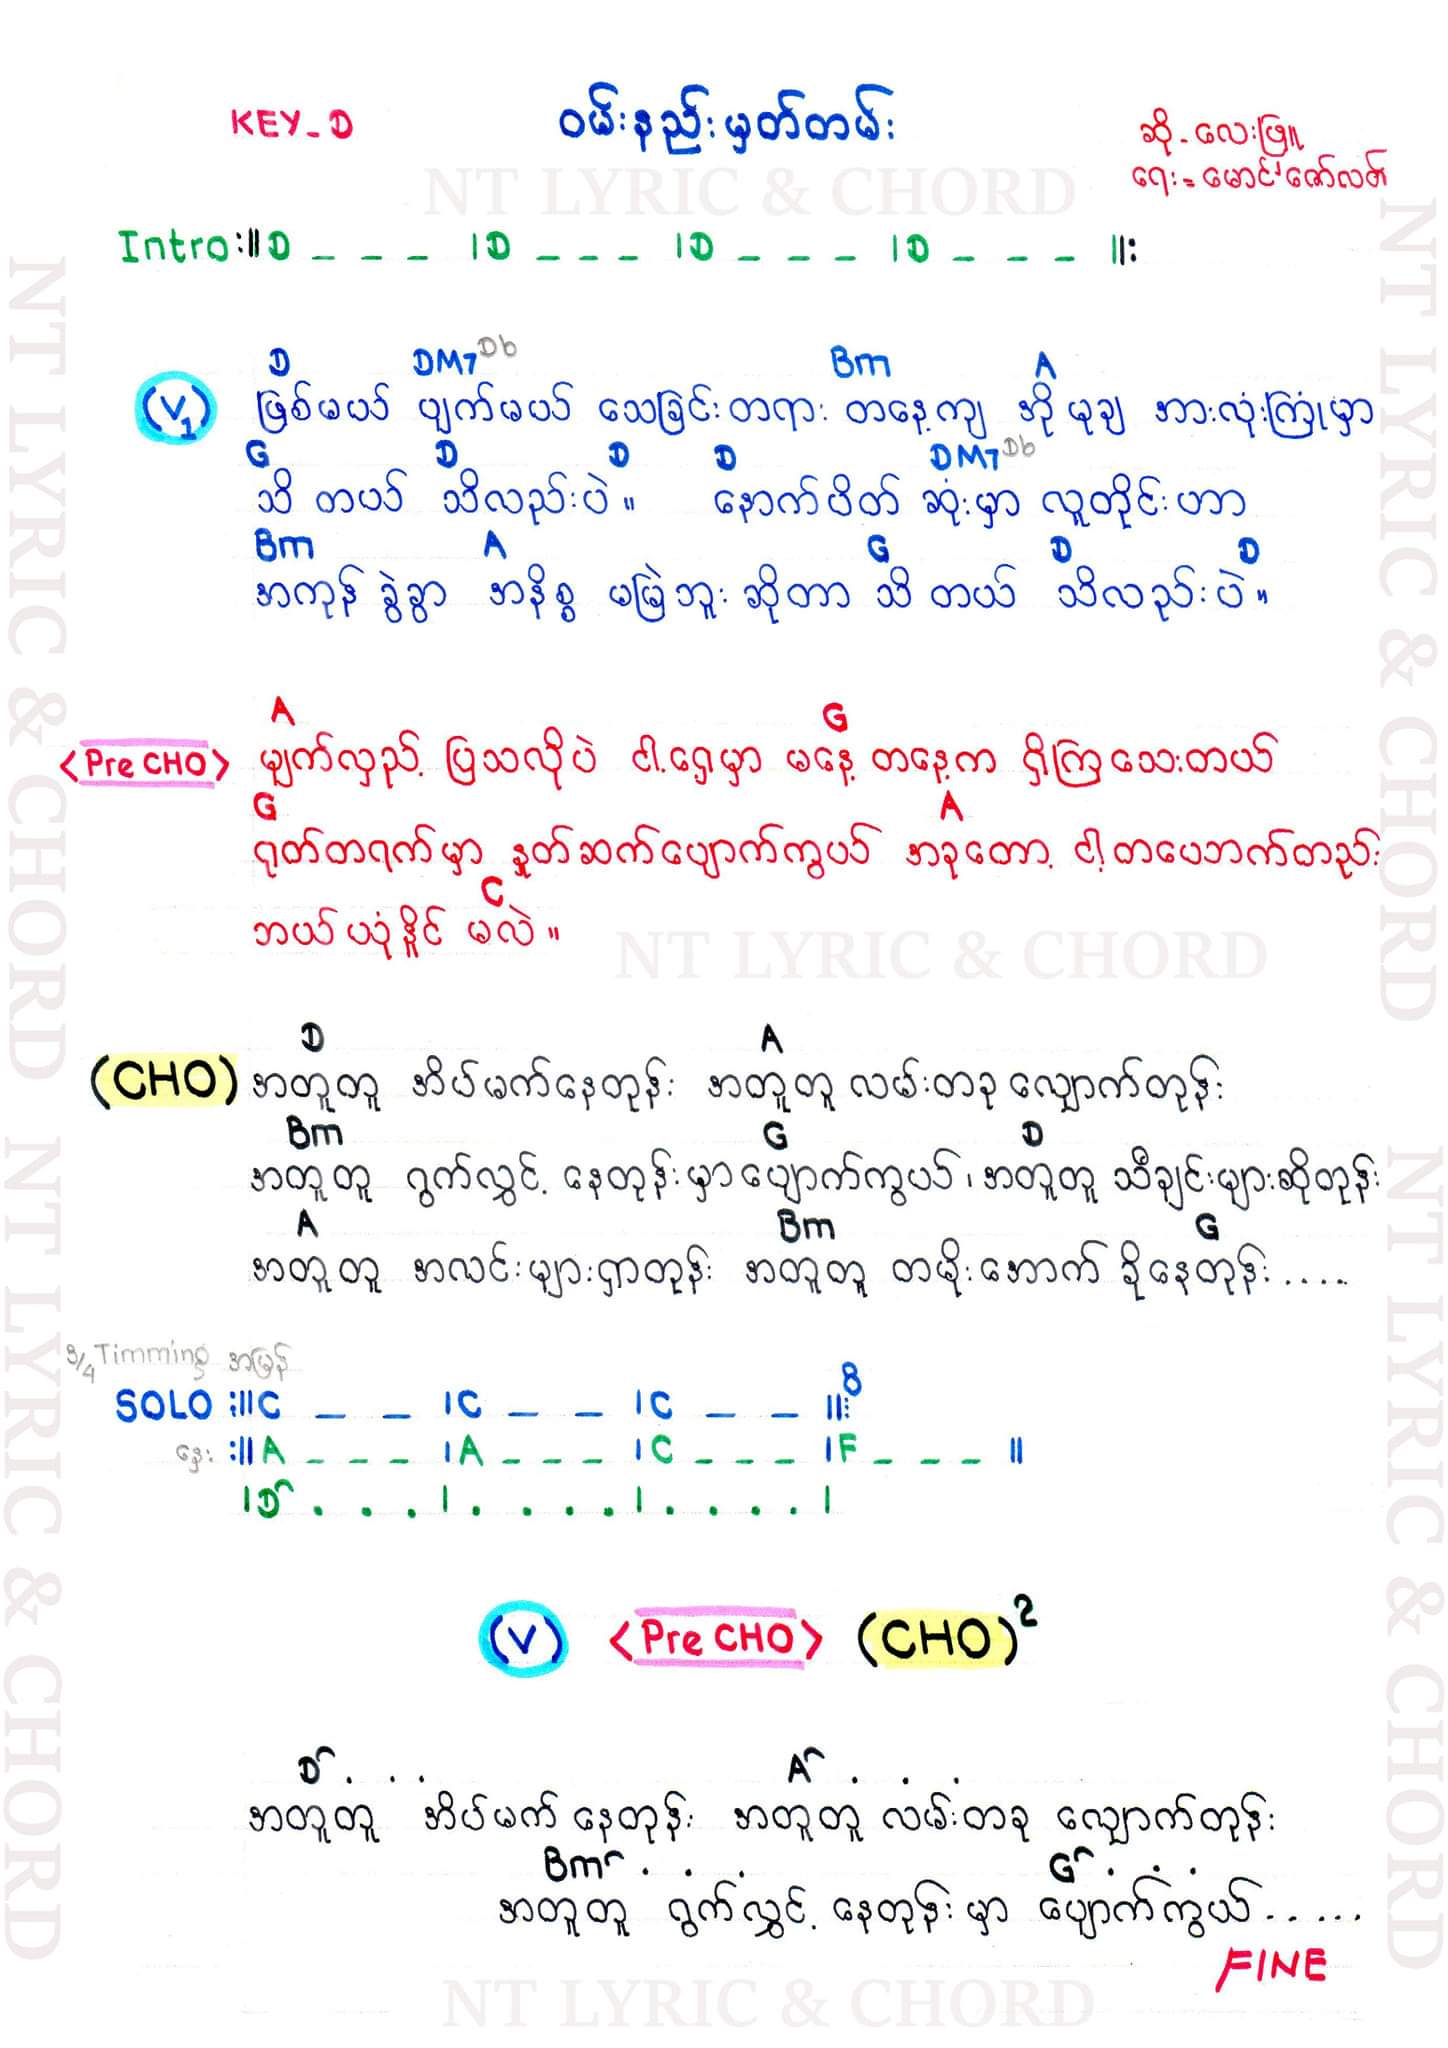 KEY_D
ဝမ်းနည်းမှတ်တမ်း
ဆို - လေးဖြူ
ရေး = မောင်မောင်ဇော်လတ်
NT LYRIC & CHORD
Intro :|| D _ _ _ | D _ _ _ | D _ _ _ | D _ _ _ ||:
D DM7 Db Bm A
(V1) ဖြစ်မယ် ပျက်မယ် သေခြင်းတရား တနေ့ကျ အို မုချ အားလုံးကြုံမှာ
G D D D DM7 Db
သိ တယ် သိလည်းပဲ။ နောက်ဖိတ် ဆုံးမှာ လူတိုင်းဟာ
Bm A G D D
အကုန် ခွဲခွာ အနိစ္စ မမြဲဘူး ဆိုတာ သိ တယ် သိလည်းပဲ။
A G
<Pre CHO> မျက်လှည့် ပြသလိုပဲ ငါ့ရှေ့မှာ မနေ့ တနေ့က ရှိကြသေးတယ်
G A
ရုတ်တရက်မှာ နှုတ်ဆက်ပျောက်ကွယ် အခုတော့ ငါ့တပေဘက်တည်း
C
ဘယ်ယုံနိုင် မလဲ။
NT LYRIC & CHORD
D A
(CHO) အတူတူ အိပ်မက်နေတုန်း အတူတူ လမ်းတခု လျှောက်တုန်း
Bm G D
အတူတူ ရွက်လွှင့် နေတုန်းမှာ ပျောက်ကွယ်၊ အတူတူ သီချင်းများဆိုတုန်း
A Bm G
အတူတူ အလင်းများရှာတုန်း အတူတူ တမိုးအောက် ခိုနေတုန်း.....
3/4 Timming အမြန်
SOLO :|||C _ _ | C _ _ | C _ _ ||: 8
နှေး :|| A _ _ _ | A _ _ _ | C _ _ _ | F _ _ _ ||
| D . . . | . . . . | . . . . |
(V) <Pre CHO> (CHO)2
D . . . A . . .
အတူတူ အိပ်မက် နေတုန်း အတူတူ လမ်းတခု လျှောက်တုန်း
Bm . . . G . . .
အတူတူ ရွက်လွှင့် နေတုန်း မှာ ပျောက်ကွယ်......
FINE
NT LYRIC & CHORD
NT LYRIC & CHORD
NT LYRIC & CHORD
NT LYRIC & CHORD
NT LYRIC & CHORD